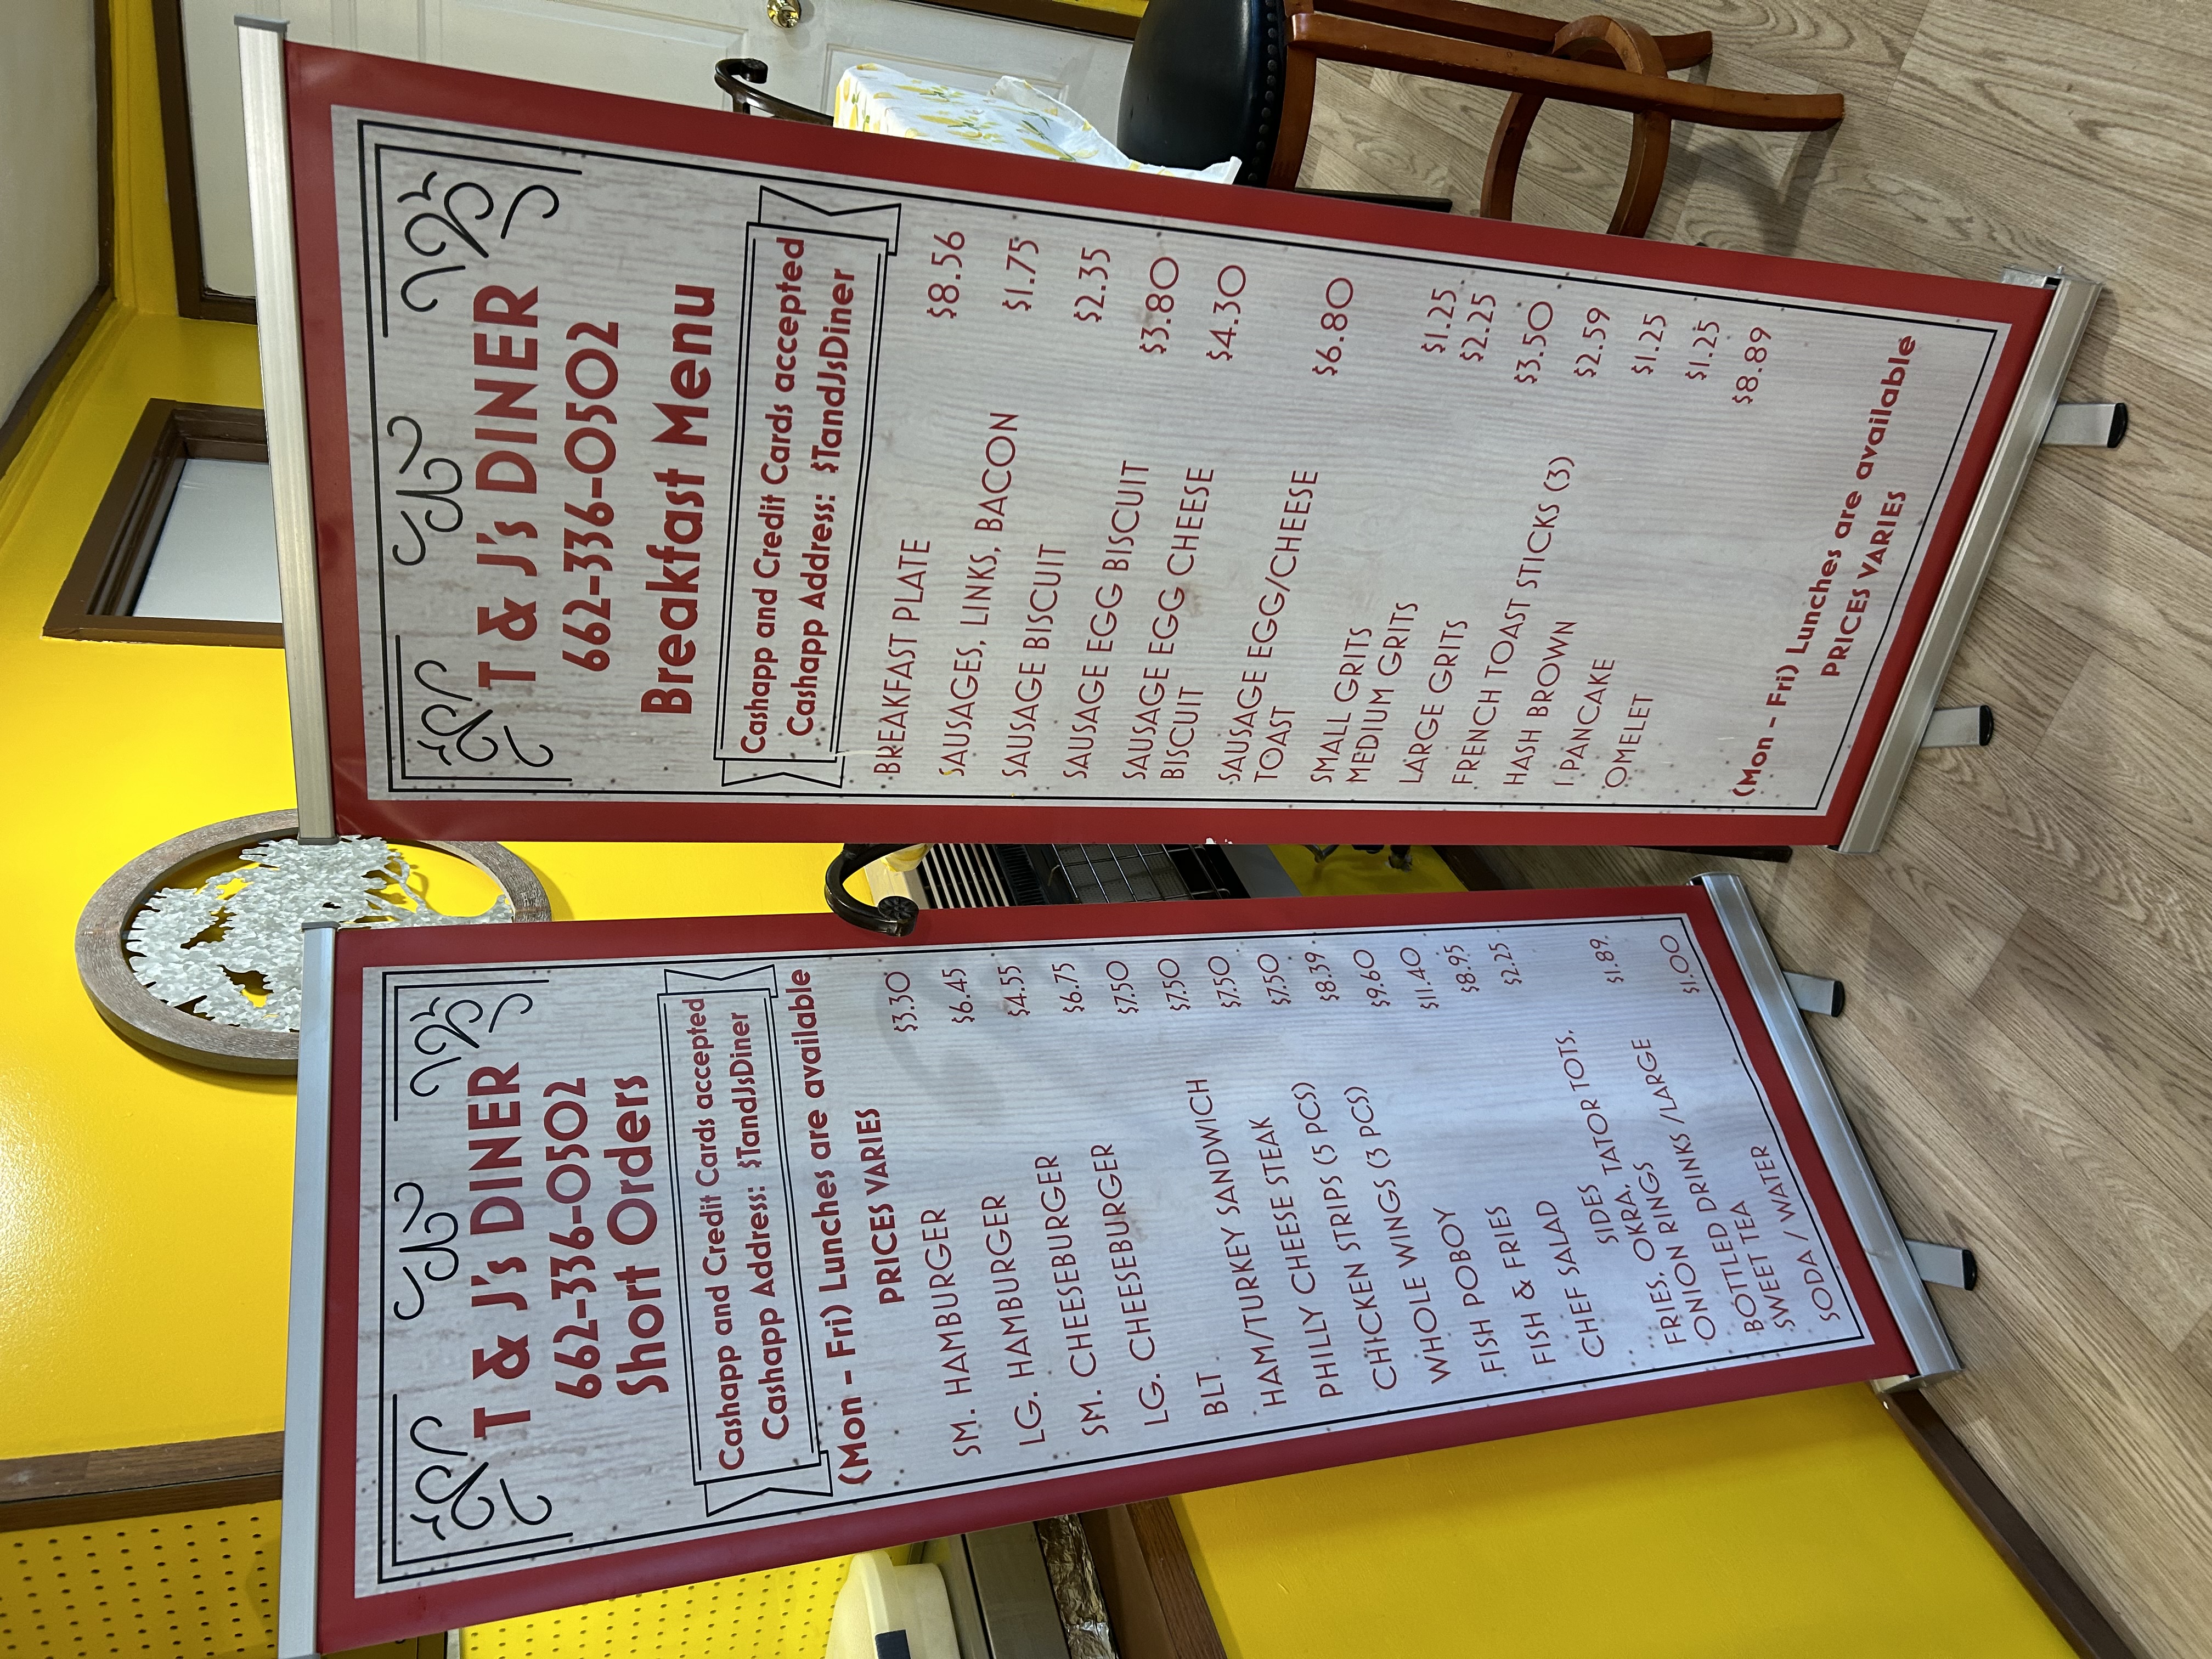 T & J's DINER
662-336-0502
Short Orders
Cashapp and Credit Cards accepted
Cashapp Address: $TandJsDiner
(Mon - Fri) Lunches are available
PRICES VARIES
SM. HAMBURGER $3.30
LG. HAMBURGER $6.45
SM. CHEESEBURGER $4.55
LG. CHEESEBURGER $6.75
BLT $7.50
HAM/TURKEY SANDWICH $7.50
PHILLY CHEESE STEAK $7.50
CHICKEN STRIPS (5 PCS) $7.50
WHOLE WINGS (3 PCS) $8.39
FISH POBOY $9.60
FISH & FRIES $11.40
CHEF SALAD $8.95
SIDES $2.25
FRIES, OKRA, TATOR TOTS,
ONION RINGS
BOTTLED DRINKS /LARGE
SWEET TEA $1.89
SODA / WATER $1.00
T & J's DINER
662-336-0502
Breakfast Menu
Cashapp and Credit Cards accepted
Cashapp Address: $TandJsDiner
BREAKFAST PLATE $8.56
SAUSAGES, LINKS, BACON $1.75
SAUSAGE BISCUIT $2.35
SAUSAGE EGG BISCUIT $3.80
SAUSAGE EGG CHEESE $4.30
BISCUIT
SAUSAGE EGG/CHEESE $6.80
TOAST
SMALL GRITS $1.25
MEDIUM GRITS $2.25
LARGE GRITS $3.50
FRENCH TOAST STICKS (3) $2.59
HASH BROWN $1.25
1 PANCAKE $1.25
OMELET $8.89
(Mon - Fri) Lunches are available
PRICES VARIES